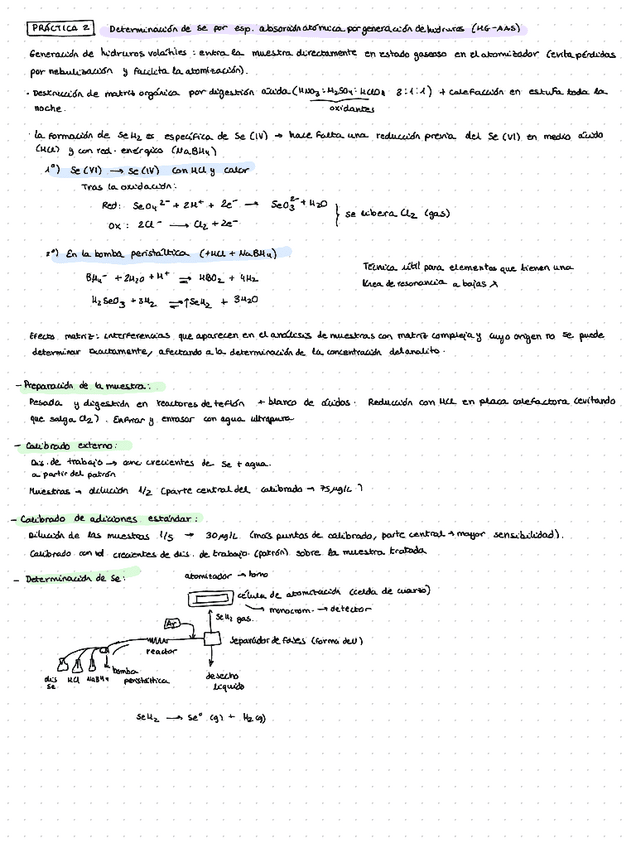 PRÁCTICA 2 Determinación de Se por esp. absorción atómica por generación de hidruros (HG-AAS)
Generación de hidruros volátiles: entra la muestra directamente en estado gaseoso en el atomizador (evita pérdidas
por nebulización y facilita la atomización).
· Destrucción de matriz orgánica por digestión ácida (HNO3:H2SO4:HClO4 8:1:1) + calefacción en estufa toda la
noche. oxidantes
· La formación de SeH2 es específica de Se(IV) → hace falta una reducción previa del Se(VI) en medio ácido
(HCl) y con red. enérgico (NaBH4)
1º) Se(VI) → Se(IV) con HCl y calor
Tras la oxidación:
Red: SeO4²⁻ + 2H⁺ + 2e⁻ → SeO3²⁻ + H2O
Ox: 2Cl⁻ → Cl2 + 2e⁻
} se libera Cl2 (gas)
2º) En la bomba peristáltica (+HCl + NaBH4)
BH4⁻ + 2H2O + H⁺ ⇌ HBO2 + 4H2
H2SeO3 + 3H2 ⇌ ↑SeH2 + 3H2O
Técnica útil para elementos que tienen una
línea de resonancia a bajas λ
Efecto matriz: interferencias que aparecen en el análisis de muestras con matriz compleja y cuyo origen no se puede
determinar exactamente, afectando a la determinación de la concentración del analito.
- Preparación de la muestra:
Pesada y digestión en reactores de teflón + blanco de ácidos. Reducción con HCl en placa calefactora (evitando
que salga Cl2). Enfriar y enrasar con agua ultrapura
- Calibrado externo:
Dis. de trabajo → conc crecientes de Se + agua.
a partir del patrón
Muestras → dilución 1/2 (parte central del calibrado → 75 µg/L)
- Calibrado de adiciones estándar:
Dilución de las muestras 1/5 → 30 µg/L (más puntos de calibrado, parte central → mayor sensibilidad).
Calibrado con vol crecientes de dis. de trabajo (patrón) sobre la muestra tratada
- Determinación de Se:
atomizador → horno
célula de atomización (celda de cuarzo)
monocrom. → detector
SeH2 gas.
Ar
separador de fases (forma de U)
reactor
bomba
peristáltica
dis
Se
HCl
NaBH4
desecho
líquido
SeH2 → Seº (g) + H2(g)